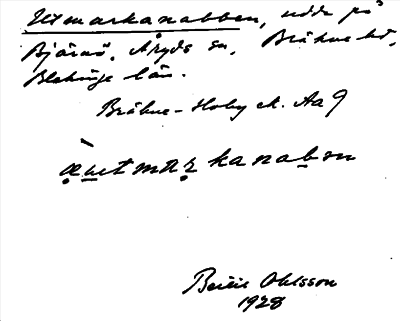 Utmarkanabben, udde på
Bjärnö, Åryds sn, Bräkne hd,
Blekinge län.
Bräkne-Hoby ek. Aa 9
Bertil Ohlsson
1928